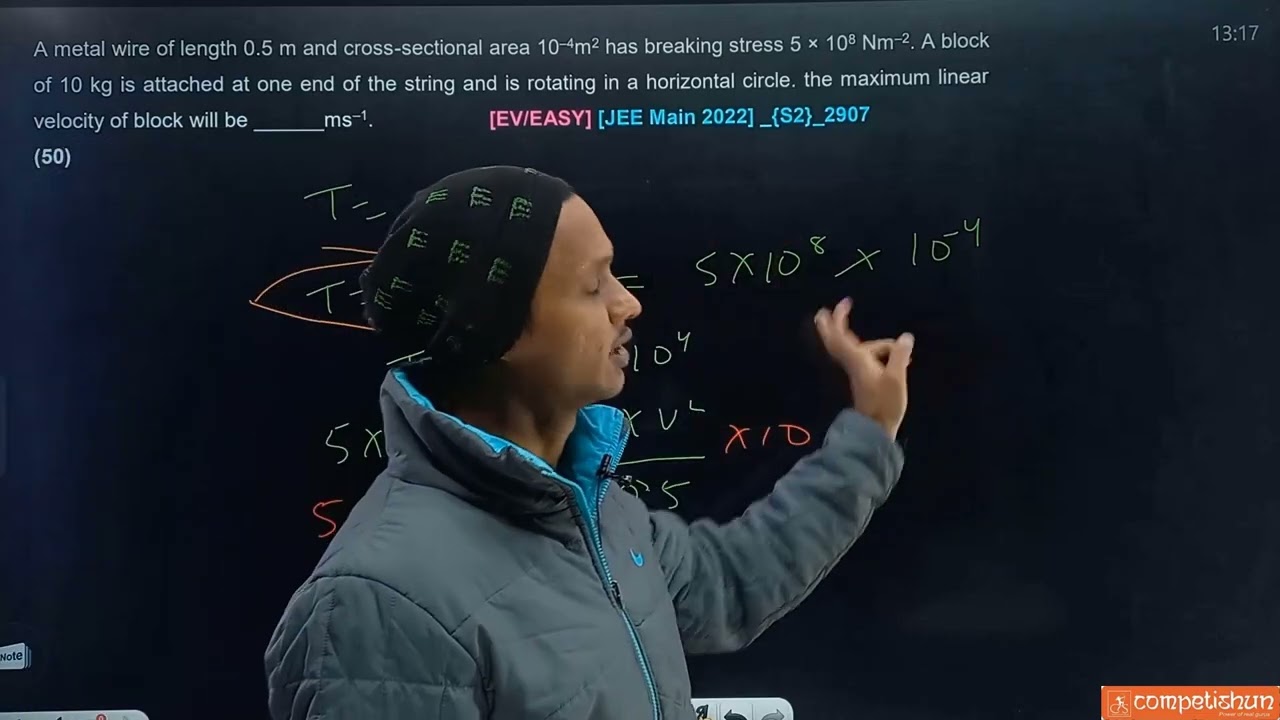 13:17
A metal wire of length 0.5 m and cross-sectional area 10⁻⁴m² has breaking stress 5 × 10⁸ Nm⁻². A block
of 10 kg is attached at one end of the string and is rotating in a horizontal circle. the maximum linear
velocity of block will be ______ms⁻¹. [EV/EASY] [JEE Main 2022] _{S2}_2907
(50)
T=
T= = 5×10⁸ × 10⁻⁴
10⁴
5× × v² ×10
5
5
Note
competishun